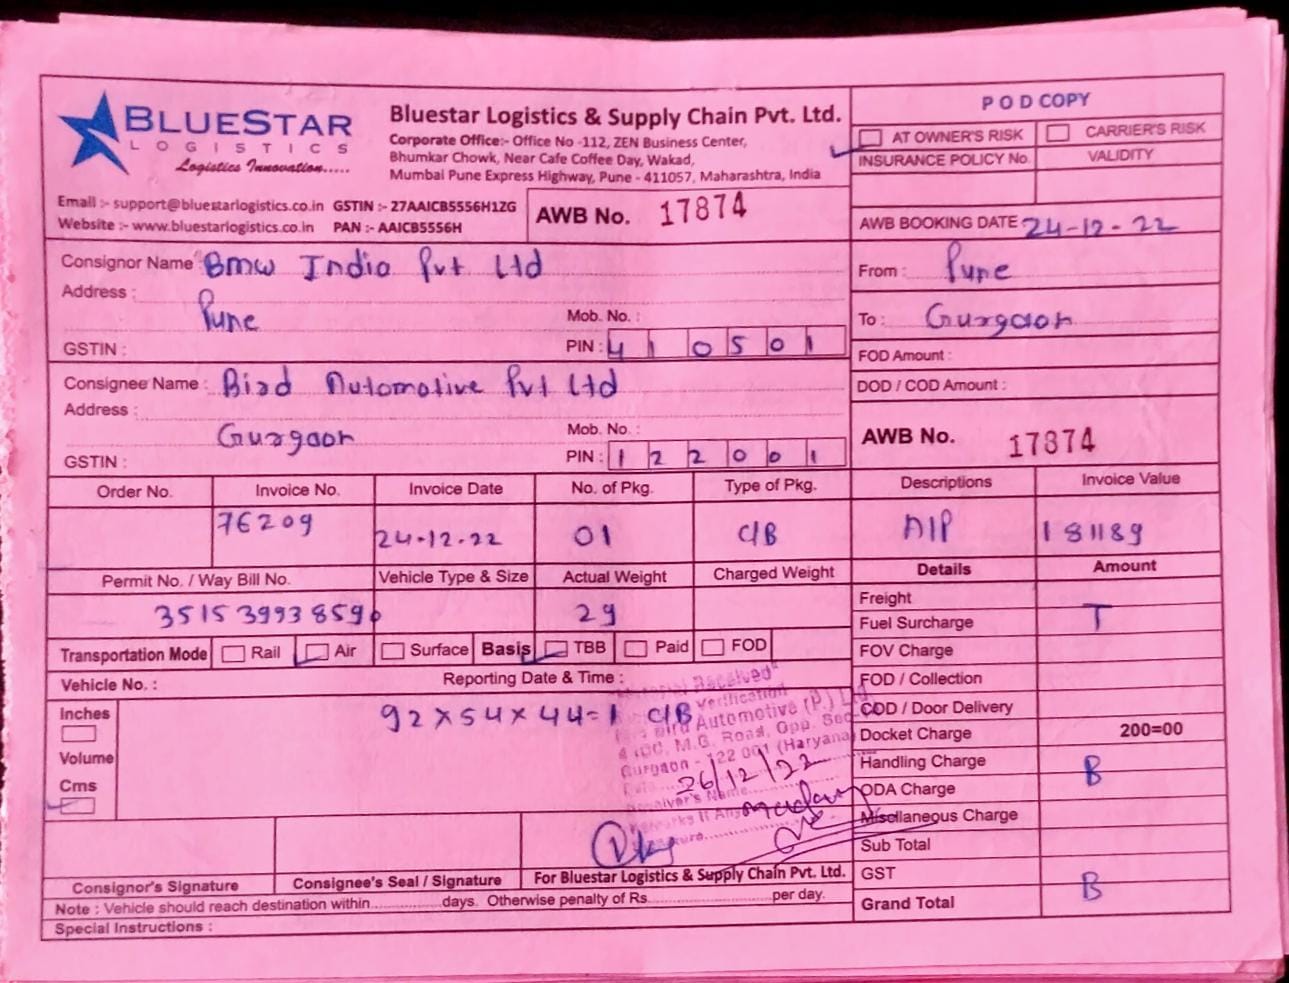 BLUESTAR
LOGISTICS
Logistics Innovation.....
Bluestar Logistics & Supply Chain Pvt. Ltd.
Corporate Office:- Office No -112, ZEN Business Center,
Bhumkar Chowk, Near Cafe Coffee Day, Wakad,
Mumbai Pune Express Highway, Pune - 411057, Maharashtra, India
Email :- support@bluestarlogistics.co.in GSTIN :- 27AAICB5556H1ZG
Website :- www.bluestarlogistics.co.in PAN :- AAICB5556H
AWB No. 17874
POD COPY
AT OWNER'S RISK CARRIER'S RISK
INSURANCE POLICY No. VALIDITY
AWB BOOKING DATE 24-12-22
Consignor Name Bmw India Pvt Ltd
Address :
Pune
Mob. No. :
GSTIN :
PIN : 410501
From : Pune
To : Gurgaon
FOD Amount :
Consignee Name : Bird Automotive Pvt Ltd
Address :
Gurgaon
Mob. No. :
GSTIN :
PIN : 122001
DOD / COD Amount :
AWB No. 17874
Order No. Invoice No. Invoice Date No. of Pkg. Type of Pkg. Descriptions Invoice Value
76209 24-12-22 01 C/B A/P 181189
Permit No. / Way Bill No. Vehicle Type & Size Actual Weight Charged Weight Details Amount
351539938590 29
Transportation Mode Rail Air Surface Basis TBB Paid FOD
Vehicle No. : Reporting Date & Time :
Inches
Volume
Cms
92x54x44=1 C/B
Material Received
Verification
Bird Automotive (P.) Ltd.
M.G. Road, Opp. Sec
Gurgaon - 122 001 (Haryana)
26/12/22
Receiver's Name
Remarks If Any
Freight
Fuel Surcharge T
FOV Charge
FOD / Collection
COD / Door Delivery
Docket Charge 200=00
Handling Charge B
ODA Charge
Miscellaneous Charge
Sub Total
GST B
Grand Total
Consignor's Signature Consignee's Seal / Signature For Bluestar Logistics & Supply Chain Pvt. Ltd.
Note : Vehicle should reach destination within..............days. Otherwise penalty of Rs.........................per day.
Special Instructions :